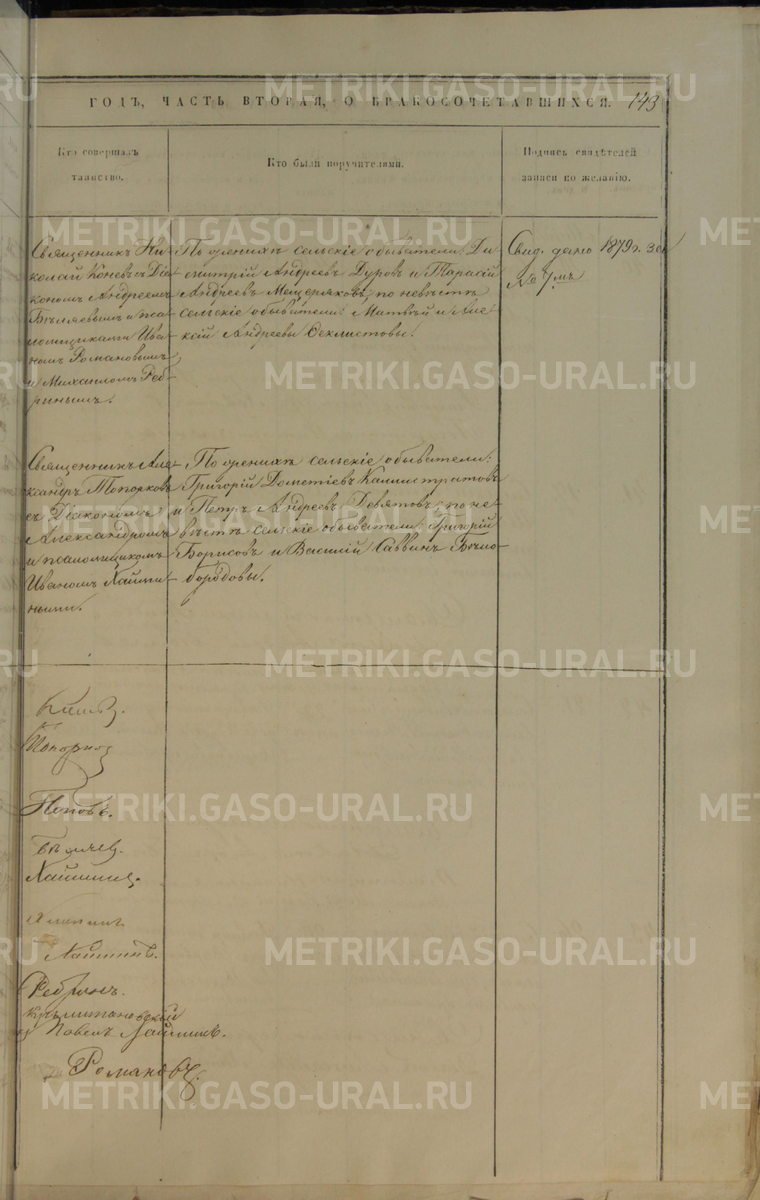 ГОДЪ, ЧАСТЬ ВТОРАЯ, О БРАКОСОЧЕТАВШИХСЯ. 143
Кто совершалъ
таинство.
Кто были поручителями.
Подпись свидѣтелей
записи по желанію.
Священникъ Ни-
колай Коневъ съ Діа-
кономъ Андреемъ
Бѣляевымъ и пса-
ломщиками Ива-
номъ Романовымъ
и Михаиломъ Реб-
ринымъ.
По женихѣ сельскіе обыватели: Ди-
митрій Андреевъ Дуровъ и Тарасій
Андреевъ Мещеряковъ; по невѣстѣ
сельскіе обыватели: Матвѣй и Але-
ксій Андреевы Феклистовы.
Свид. дано 1879 г.
№ 7мъ
Священникъ Але-
ксандръ Топорковъ
съ Діакономъ
Александромъ
и псаломщикомъ
Иваномъ Хайми-
нымъ.
По женихѣ сельскіе обыватели:
Григорій Дометіевъ Каллистратовъ
и Петръ Андреевъ Девятовъ; по не-
вѣстѣ сельскіе обыватели: Григорій
Борисовъ и Василій Саввинъ Бѣло-
бородовы.
Поповъ.
Бѣляев.
Ребринъ.
Павелъ
Романовъ.
METRIKI.GASO-URAL.RU